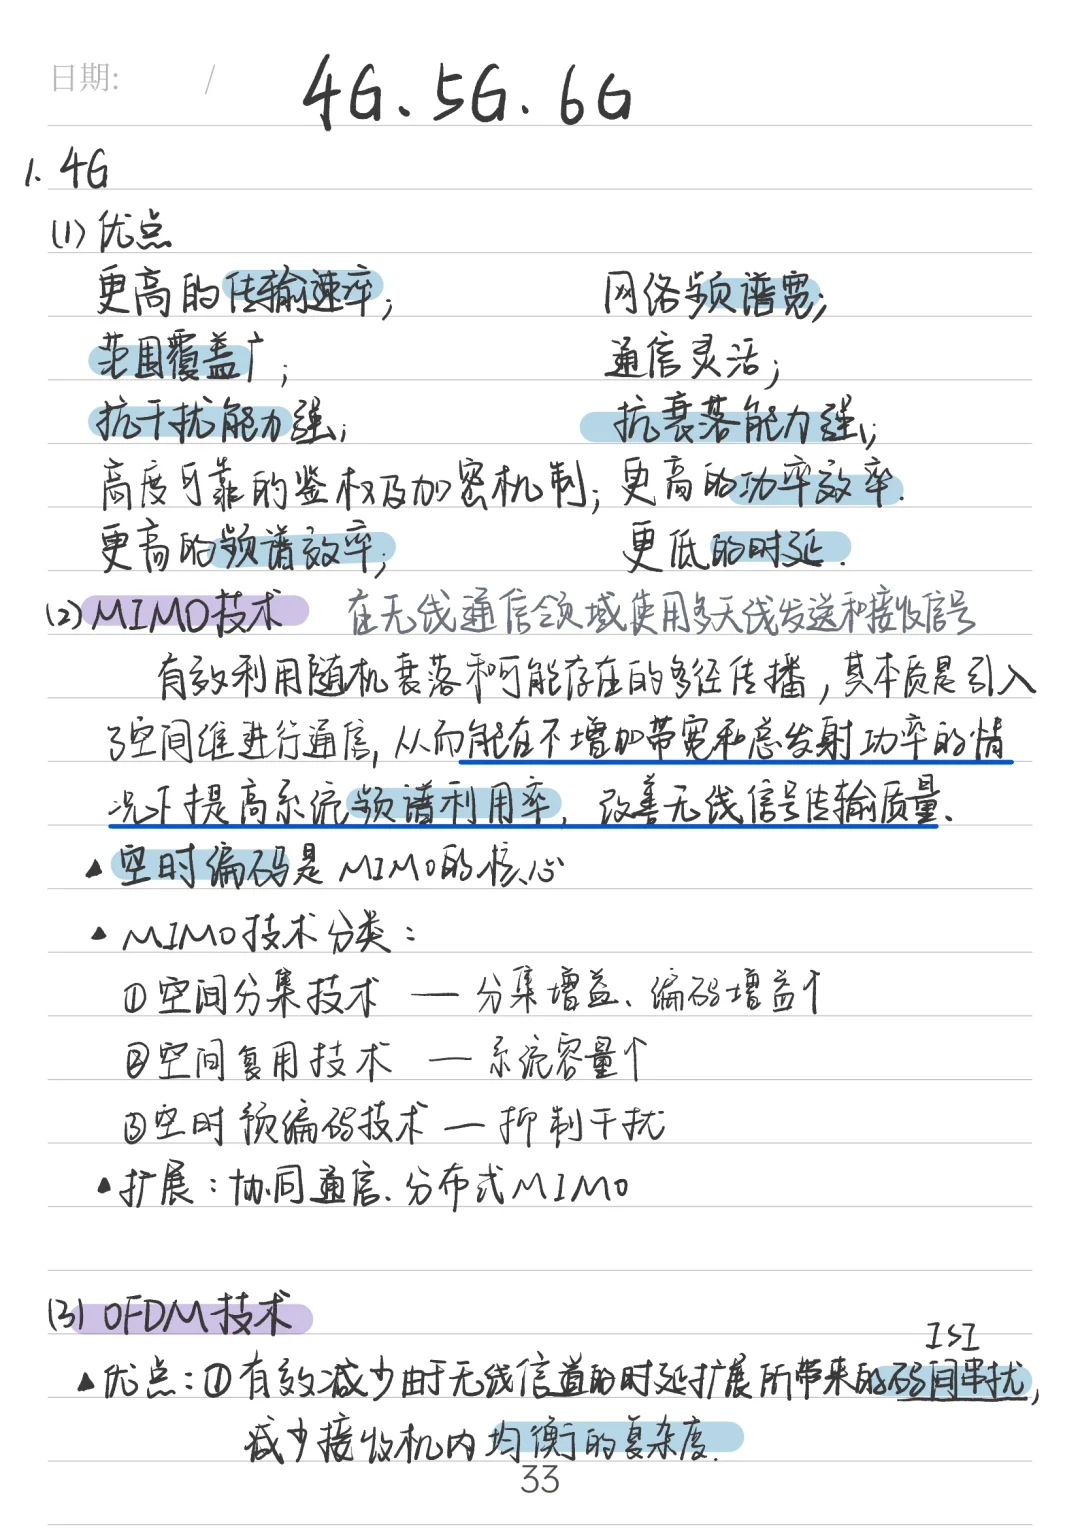 日期: /
4G、5G、6G
1. 4G
(1) 优点
更高的传输速率; 网络频谱宽;
范围覆盖广; 通信灵活;
抗干扰能力强; 抗衰落能力强;
高度可靠的鉴权及加密机制; 更高的功率效率.
更高的频谱效率; 更低的时延.
(2) MIMO技术 在无线通信领域使用多天线发送和接收信号
有效利用随机衰落和可能存在的多径传播,其本质是引入
了空间维进行通信,从而能在不增加带宽和总发射功率的情
况下提高系统频谱利用率,改善无线信号传输质量.
▲ 空时编码是MIMO的核心
▲ MIMO技术分类:
①空间分集技术 — 分集增益、编码增益↑
②空间复用技术 — 系统容量↑
③空时预编码技术 — 抑制干扰
▲扩展: 协同通信、分布式MIMO
(3) OFDM技术
ISI
▲优点:①有效减少由于无线信道的时延扩展所带来的码间串扰,
减少接收机内均衡的复杂度.
33